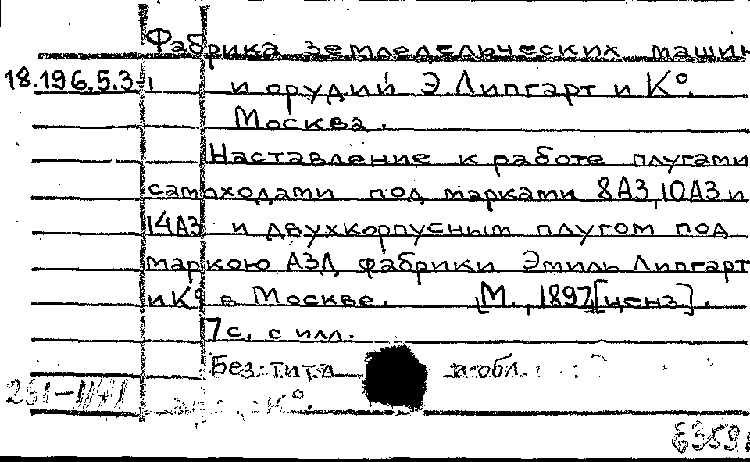 Фабрика земледельческих машин
18.196.5.3 и орудий Э. Липгарт и К°.
Москва.
Наставление к работе плугами
самоходами под марками 8АЗ, 10АЗ и
14АЗ и двухкорпусным плугом под
маркою АЗД фабрики Эмиль Липгарт
и К° в Москве. [М., 1897 [ценз].
7 с. с илл.
Без тит. обл.
К°.